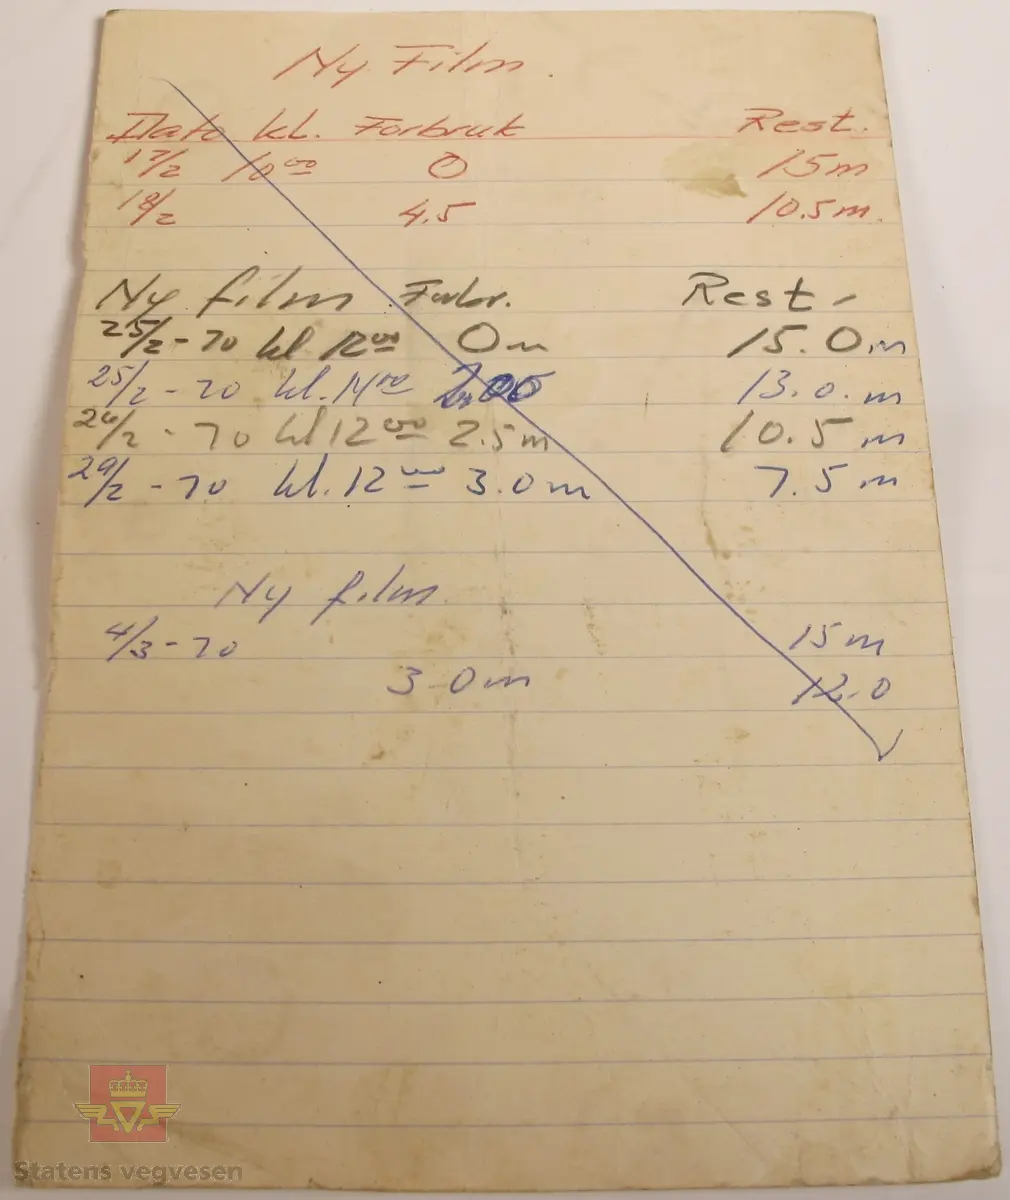 Ny Film.
Dato kl. Forbruk Rest.
17/2 10⁰⁰ 0 15m
18/2 4.5 10.5m.
Ny film Forbr. Rest.
25/2-70 kl 12⁰⁰ 0m 15.0m
25/2-70 kl.14⁰⁰ 13.0.m
26/2-70 kl 12⁰⁰ 2.5m 10.5m
29/2-70 kl.12⁰⁰ 3.0m 7.5m
Ny film.
4/3-70 15m
3.0m 12.0
Statens vegvesen